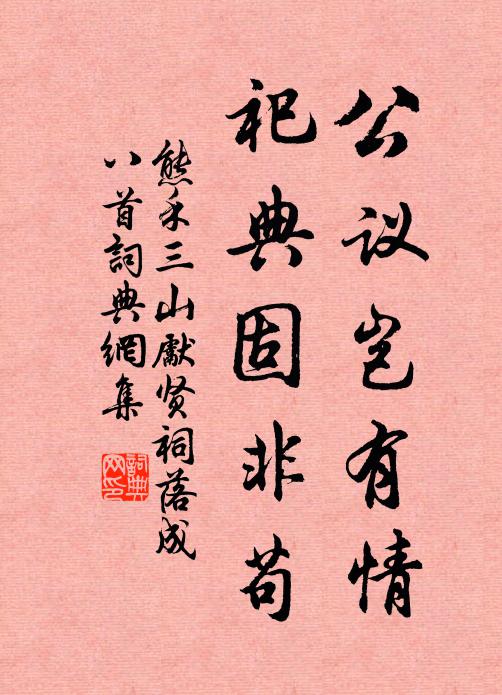 公议岂有情
祀典固非苟
熊禾三山獻贤祠落成
八首詞典網集
詞典网印